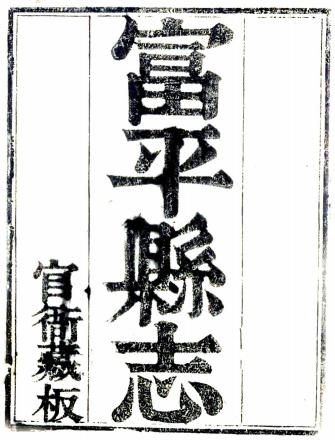 富平縣志
官衙藏板